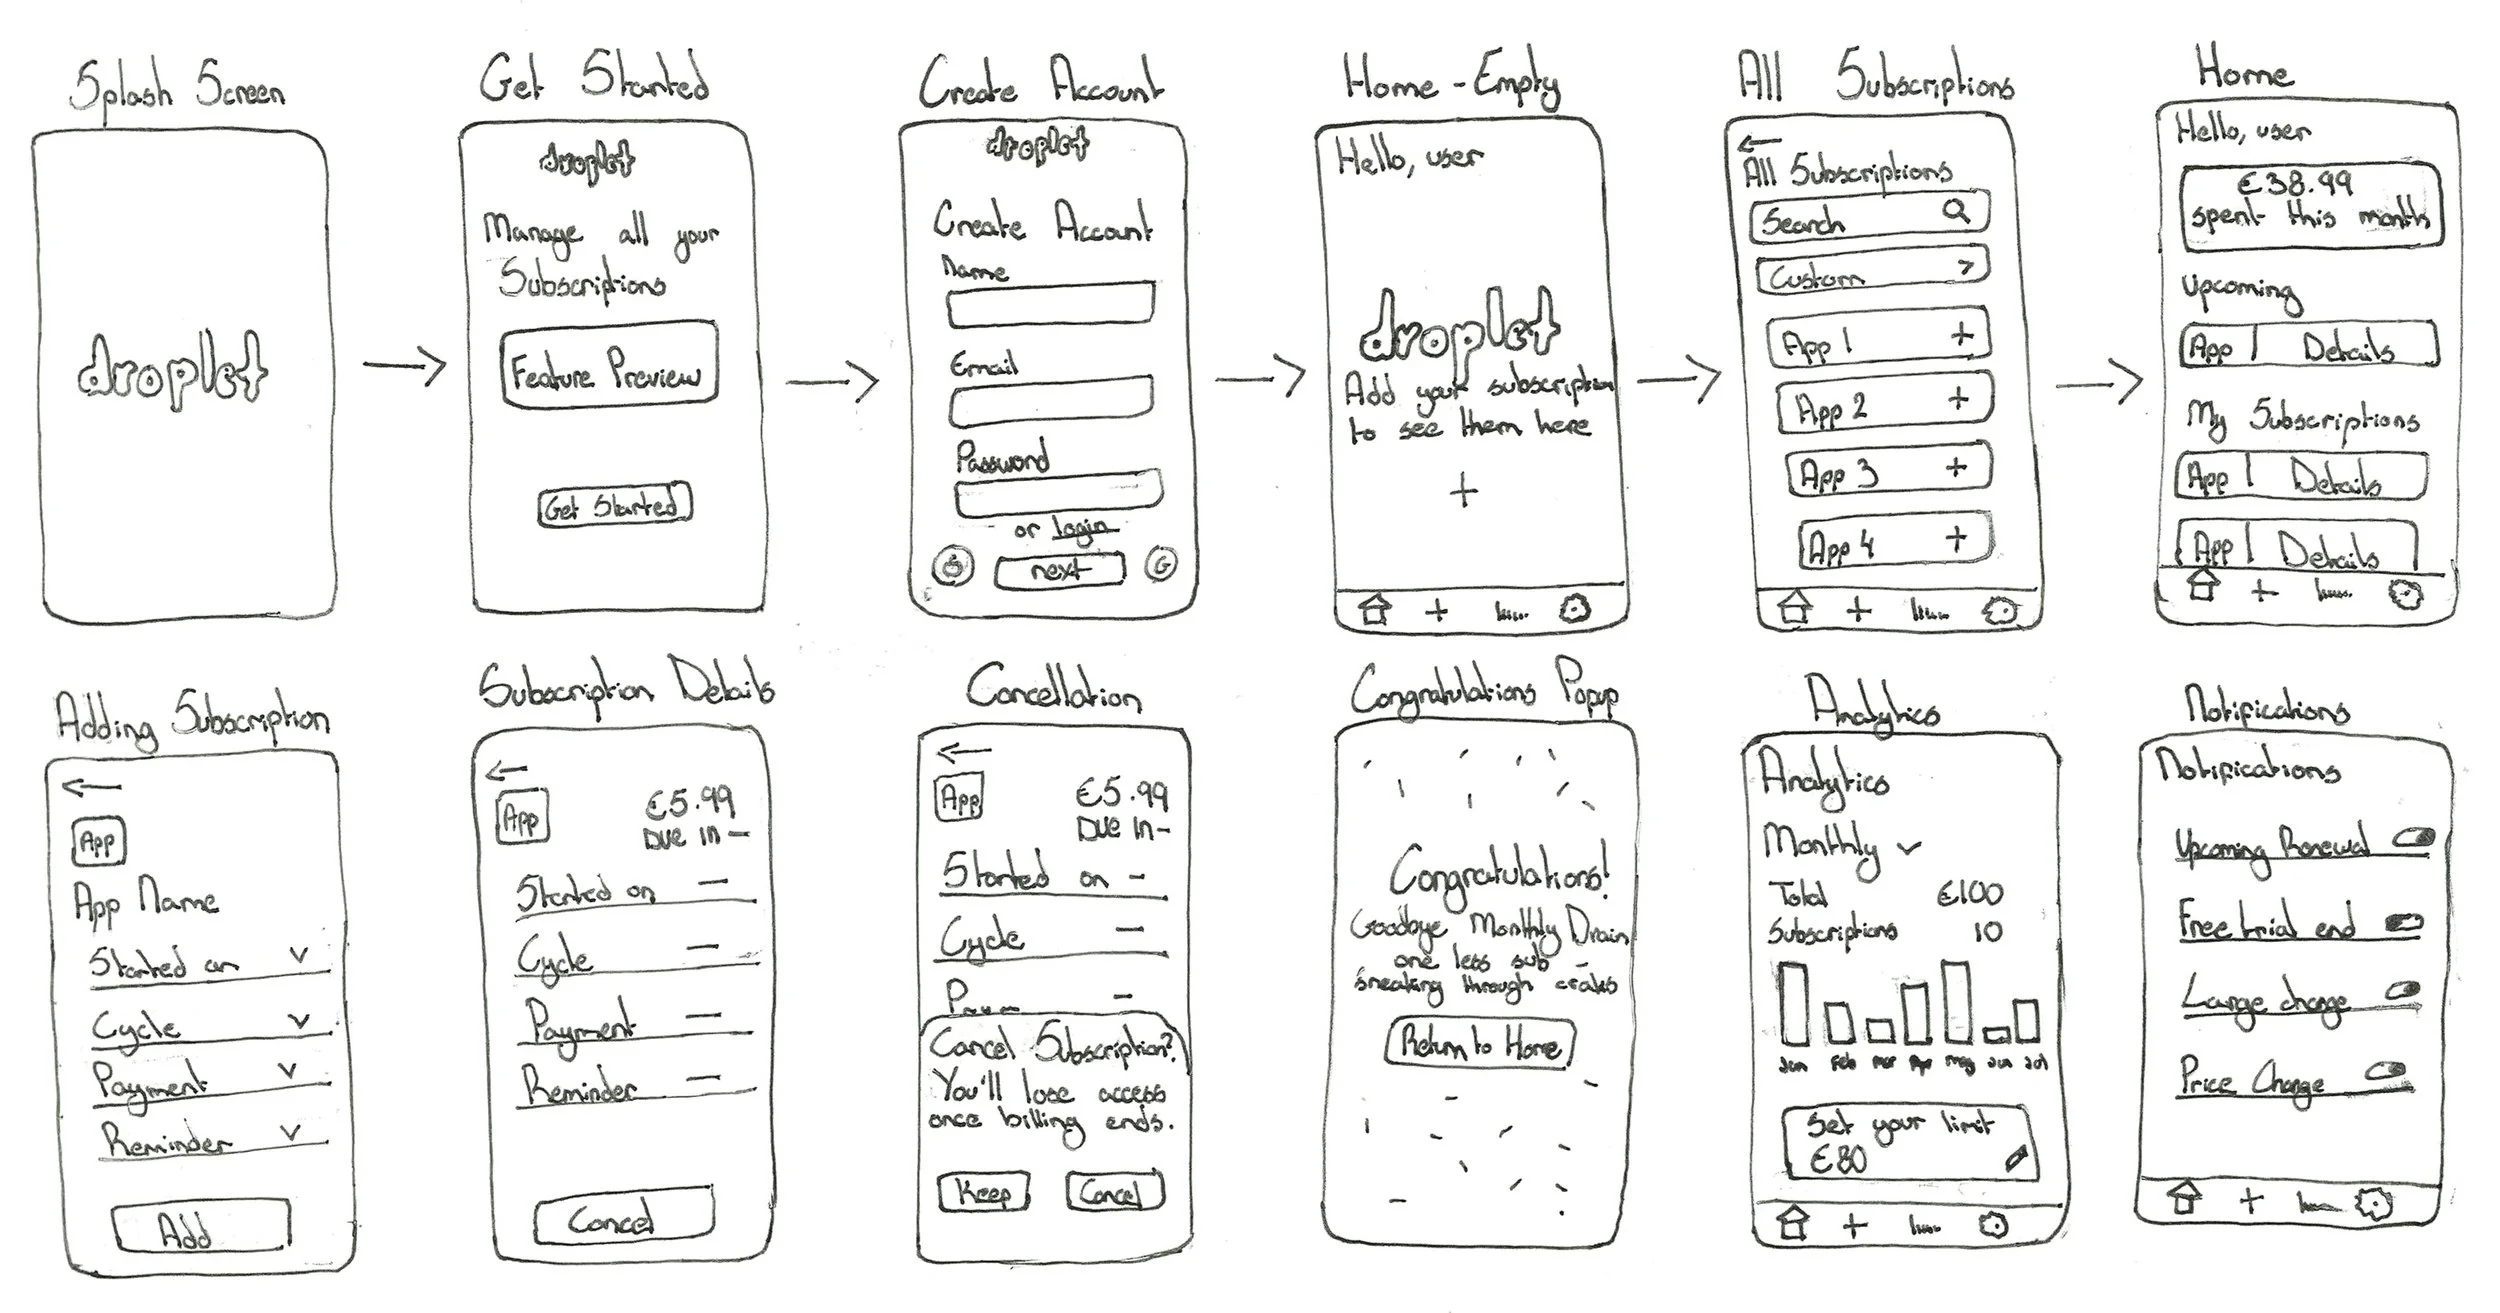 Splash Screen
droplet
Get Started
droplet
Manage all your
Subscriptions
Feature Preview
Get Started
Create Account
droplet
Create Account
Name
Email
Password
or login
next
G
Home - Empty
Hello, user
droplet
Add your subscription
to see them here
+
All Subscriptions
←
All Subscriptions
Search
Custom >
App 1 +
App 2 +
App 3 +
App 4 +
+
Home
Hello, user
€38.99
spent this month
Upcoming
App | Details
My Subscriptions
App | Details
App | Details
+
Adding Subscription
←
App
App Name
Started on
Cycle
Payment
Reminder
Add
Subscription Details
←
App
€5.99
Due in -
Started on -
Cycle -
Payment -
Reminder -
Cancel
Cancellation
←
App
€5.99
Due in -
Started on -
Cycle -
Cancel Subscription?
You'll lose access
once billing ends.
Keep Cancel
Congratulations Popup
Congratulations!
Goodbye Monthly Drain
one less sub -
sneaking through craks
Return to Home
Analytics
Analytics
Monthly
Total €100
Subscriptions 10
Jan Feb Mar Apr May Jun Jul
Set your limit
€80
+
Notifications
Notifications
Upcoming Renewal
Free trial end
Large charge
Price Change
+